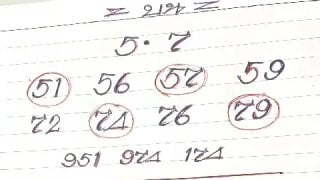 5·7
51 56 57 59
72 74 76 79
951 974 174